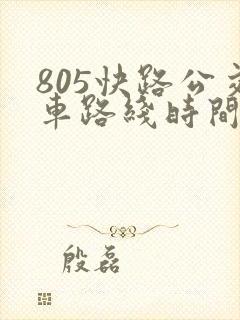 805快路公交
車路綫時間
殷磊